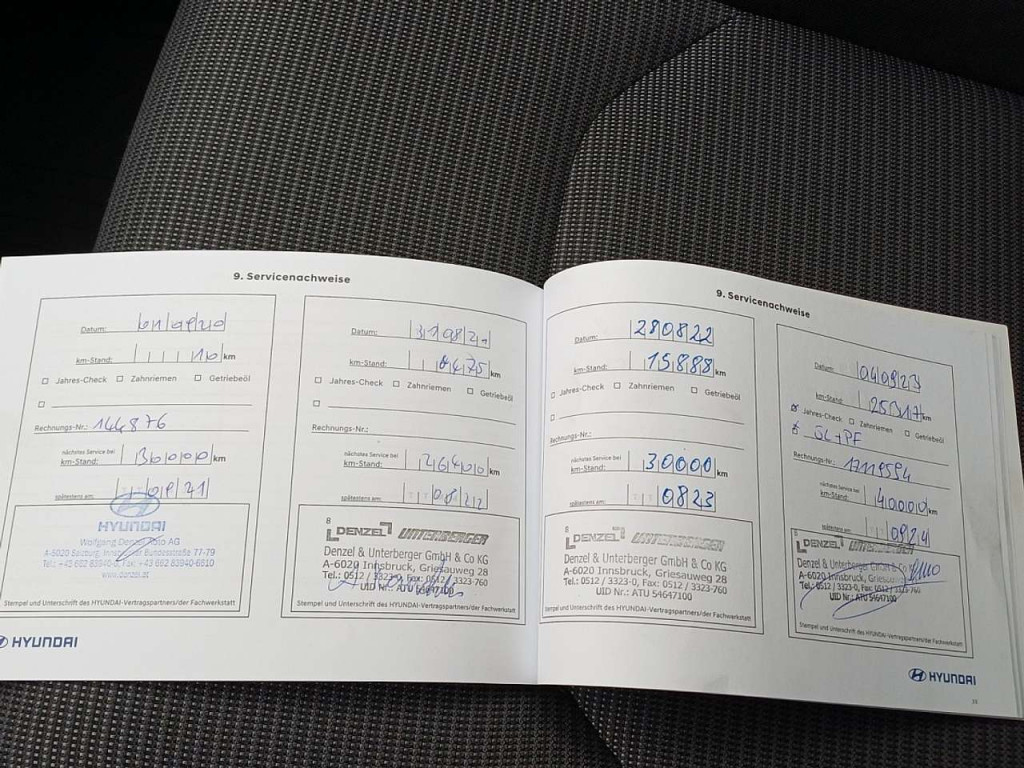 9. Servicenachweise
Datum: 01 09 20
km-Stand: 10 km
Jahres-Check Zahnriemen Getriebeöl
Rechnungs-Nr.: 144876
nächstes Service bei
km-Stand: 30000 km
spätestens am: 09 21
HYUNDAI
Wolfgang Denzel Auto AG
A-5020 Salzburg, Innsbrucker Bundesstraße 77-79
Tel.: +43 662 83940-0, Fax: +43 662 83940-6510
www.denzel.at
Stempel und Unterschrift des HYUNDAI-Vertragspartners/der Fachwerkstatt
Datum: 31 08 21
km-Stand: km
Jahres-Check Zahnriemen Getriebeöl
Rechnungs-Nr.:
nächstes Service bei
km-Stand: 26400 km
spätestens am: 08 22
8
DENZEL UNTERBERGER
Denzel & Unterberger GmbH & Co KG
A-6020 Innsbruck, Griesauweg 28
Tel.: 0512 / 3323-0, Fax: 0512 / 3323-760
UID Nr.: ATU 54647100
Stempel und Unterschrift des HYUNDAI-Vertragspartners/der Fachwerkstatt
HYUNDAI
9. Servicenachweise
Datum: 290822
km-Stand: 15888 km
Jahres-Check Zahnriemen Getriebeöl
Rechnungs-Nr.:
nächstes Service bei
km-Stand: 30000 km
spätestens am: 0823
8
DENZEL UNTERBERGER
Denzel & Unterberger GmbH & Co KG
A-6020 Innsbruck, Griesauweg 28
Tel.: 0512 / 3323-0, Fax: 0512 / 3323-760
UID Nr.: ATU 54647100
Stempel und Unterschrift des HYUNDAI-Vertragspartners/der Fachwerkstatt
Datum: 040923
km-Stand: 25317 km
Jahres-Check Zahnriemen Getriebeöl
ÖL + PF
Rechnungs-Nr.: 17119594
nächstes Service bei
km-Stand: 40000 km
spätestens am: 0924
8
DENZEL UNTERBERGER
Denzel & Unterberger GmbH & Co KG
A-6020 Innsbruck, Griesauweg
Tel.: 0512 / 3323-0, Fax: 0512 / 3323-760
UID Nr.: ATU 54647100
Stempel und Unterschrift des HYUNDAI-Vertragspartners/der Fachwerkstatt
HYUNDAI